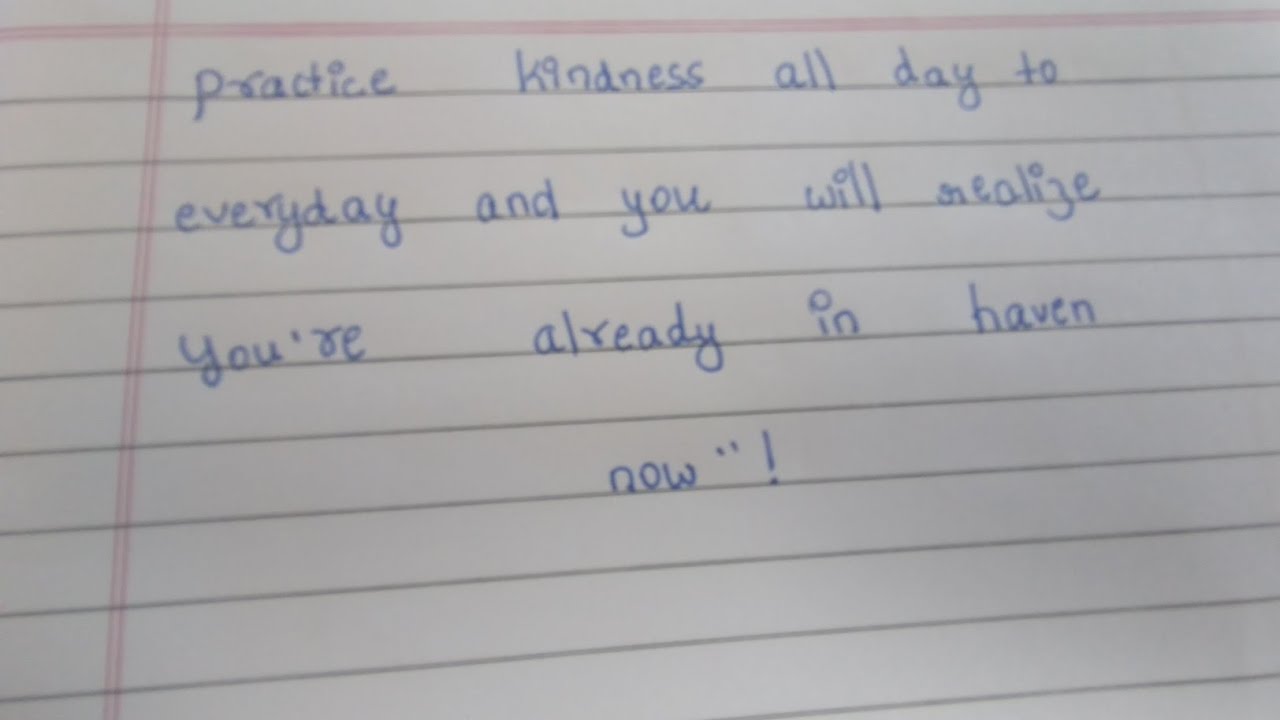 practice kindness all day to
everyday and you will realize
you're already in haven
now"!